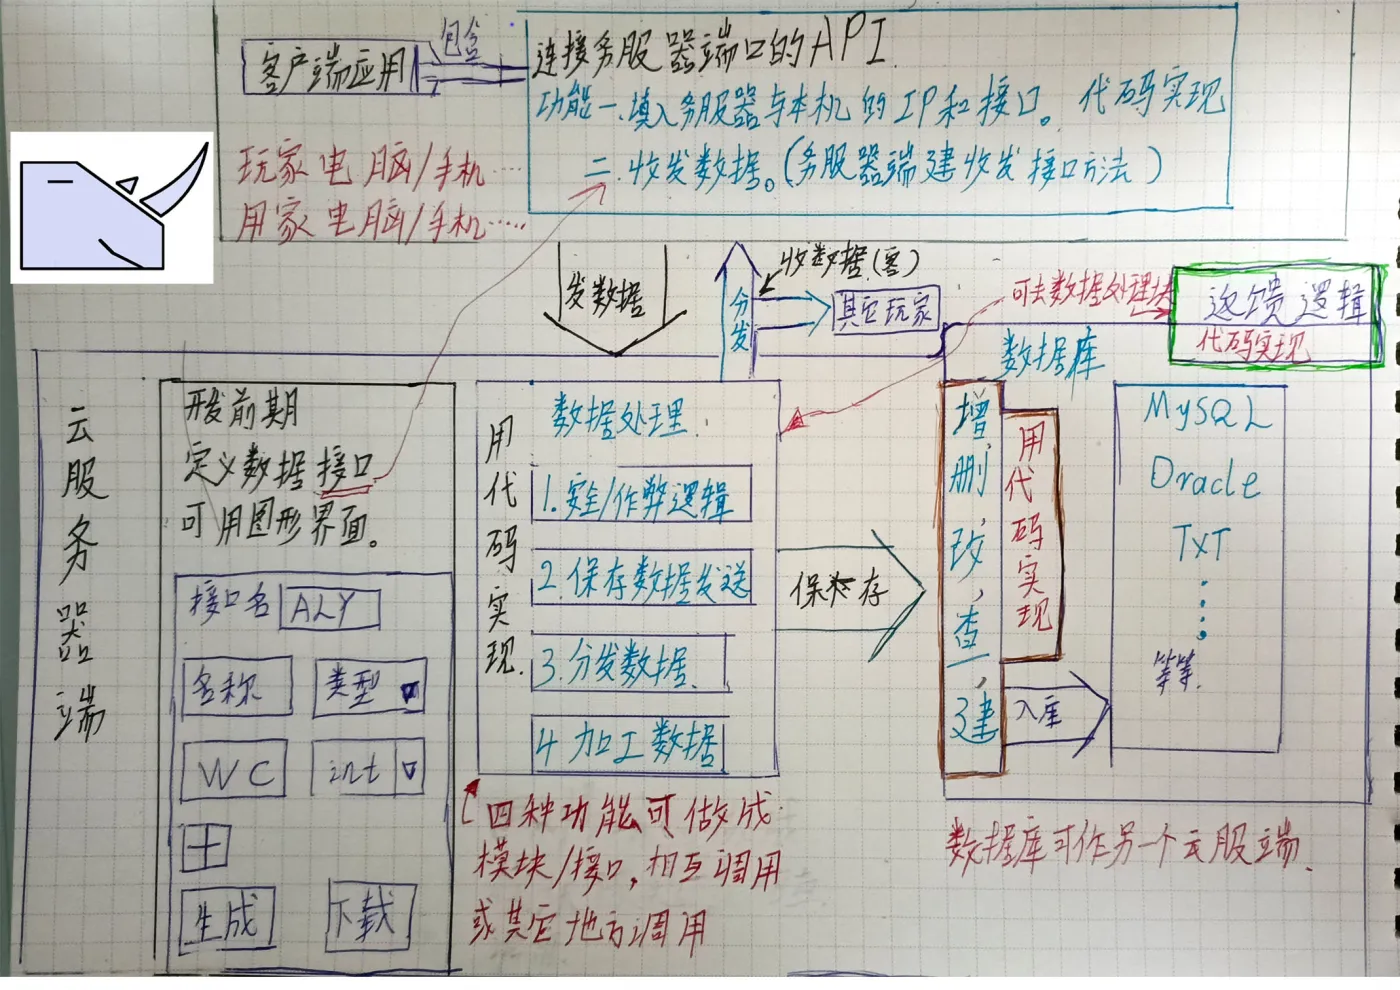 客户端应用
包含
连接务服器端口的API.
功能一.填入务服器与本机的IP和接口。代码实现
二.收发数据。(务服器端建收发接口方法)
玩家电脑/手机……
用家电脑/手机……
发数据
分发
收数据(客)
其它玩家
可去数据处理块
逻辑
代码实现
云服务器端
开发前期
定义数据接口
可用图形界面。
接口名 ALY
名称 类型
WC int
十
生成 下载
用代码实现.
数据处理.
1.安全/作弊逻辑
2.保存数据发送
3.分发数据.
4 加工数据
四种功能可做成
模块/接口,相互调用
或其它地方调用
保存
数据库
增,删,改,查,建
用代码实现
入库
MySQL
Oracle
TxT
等等.
数据库可作另个云服端.